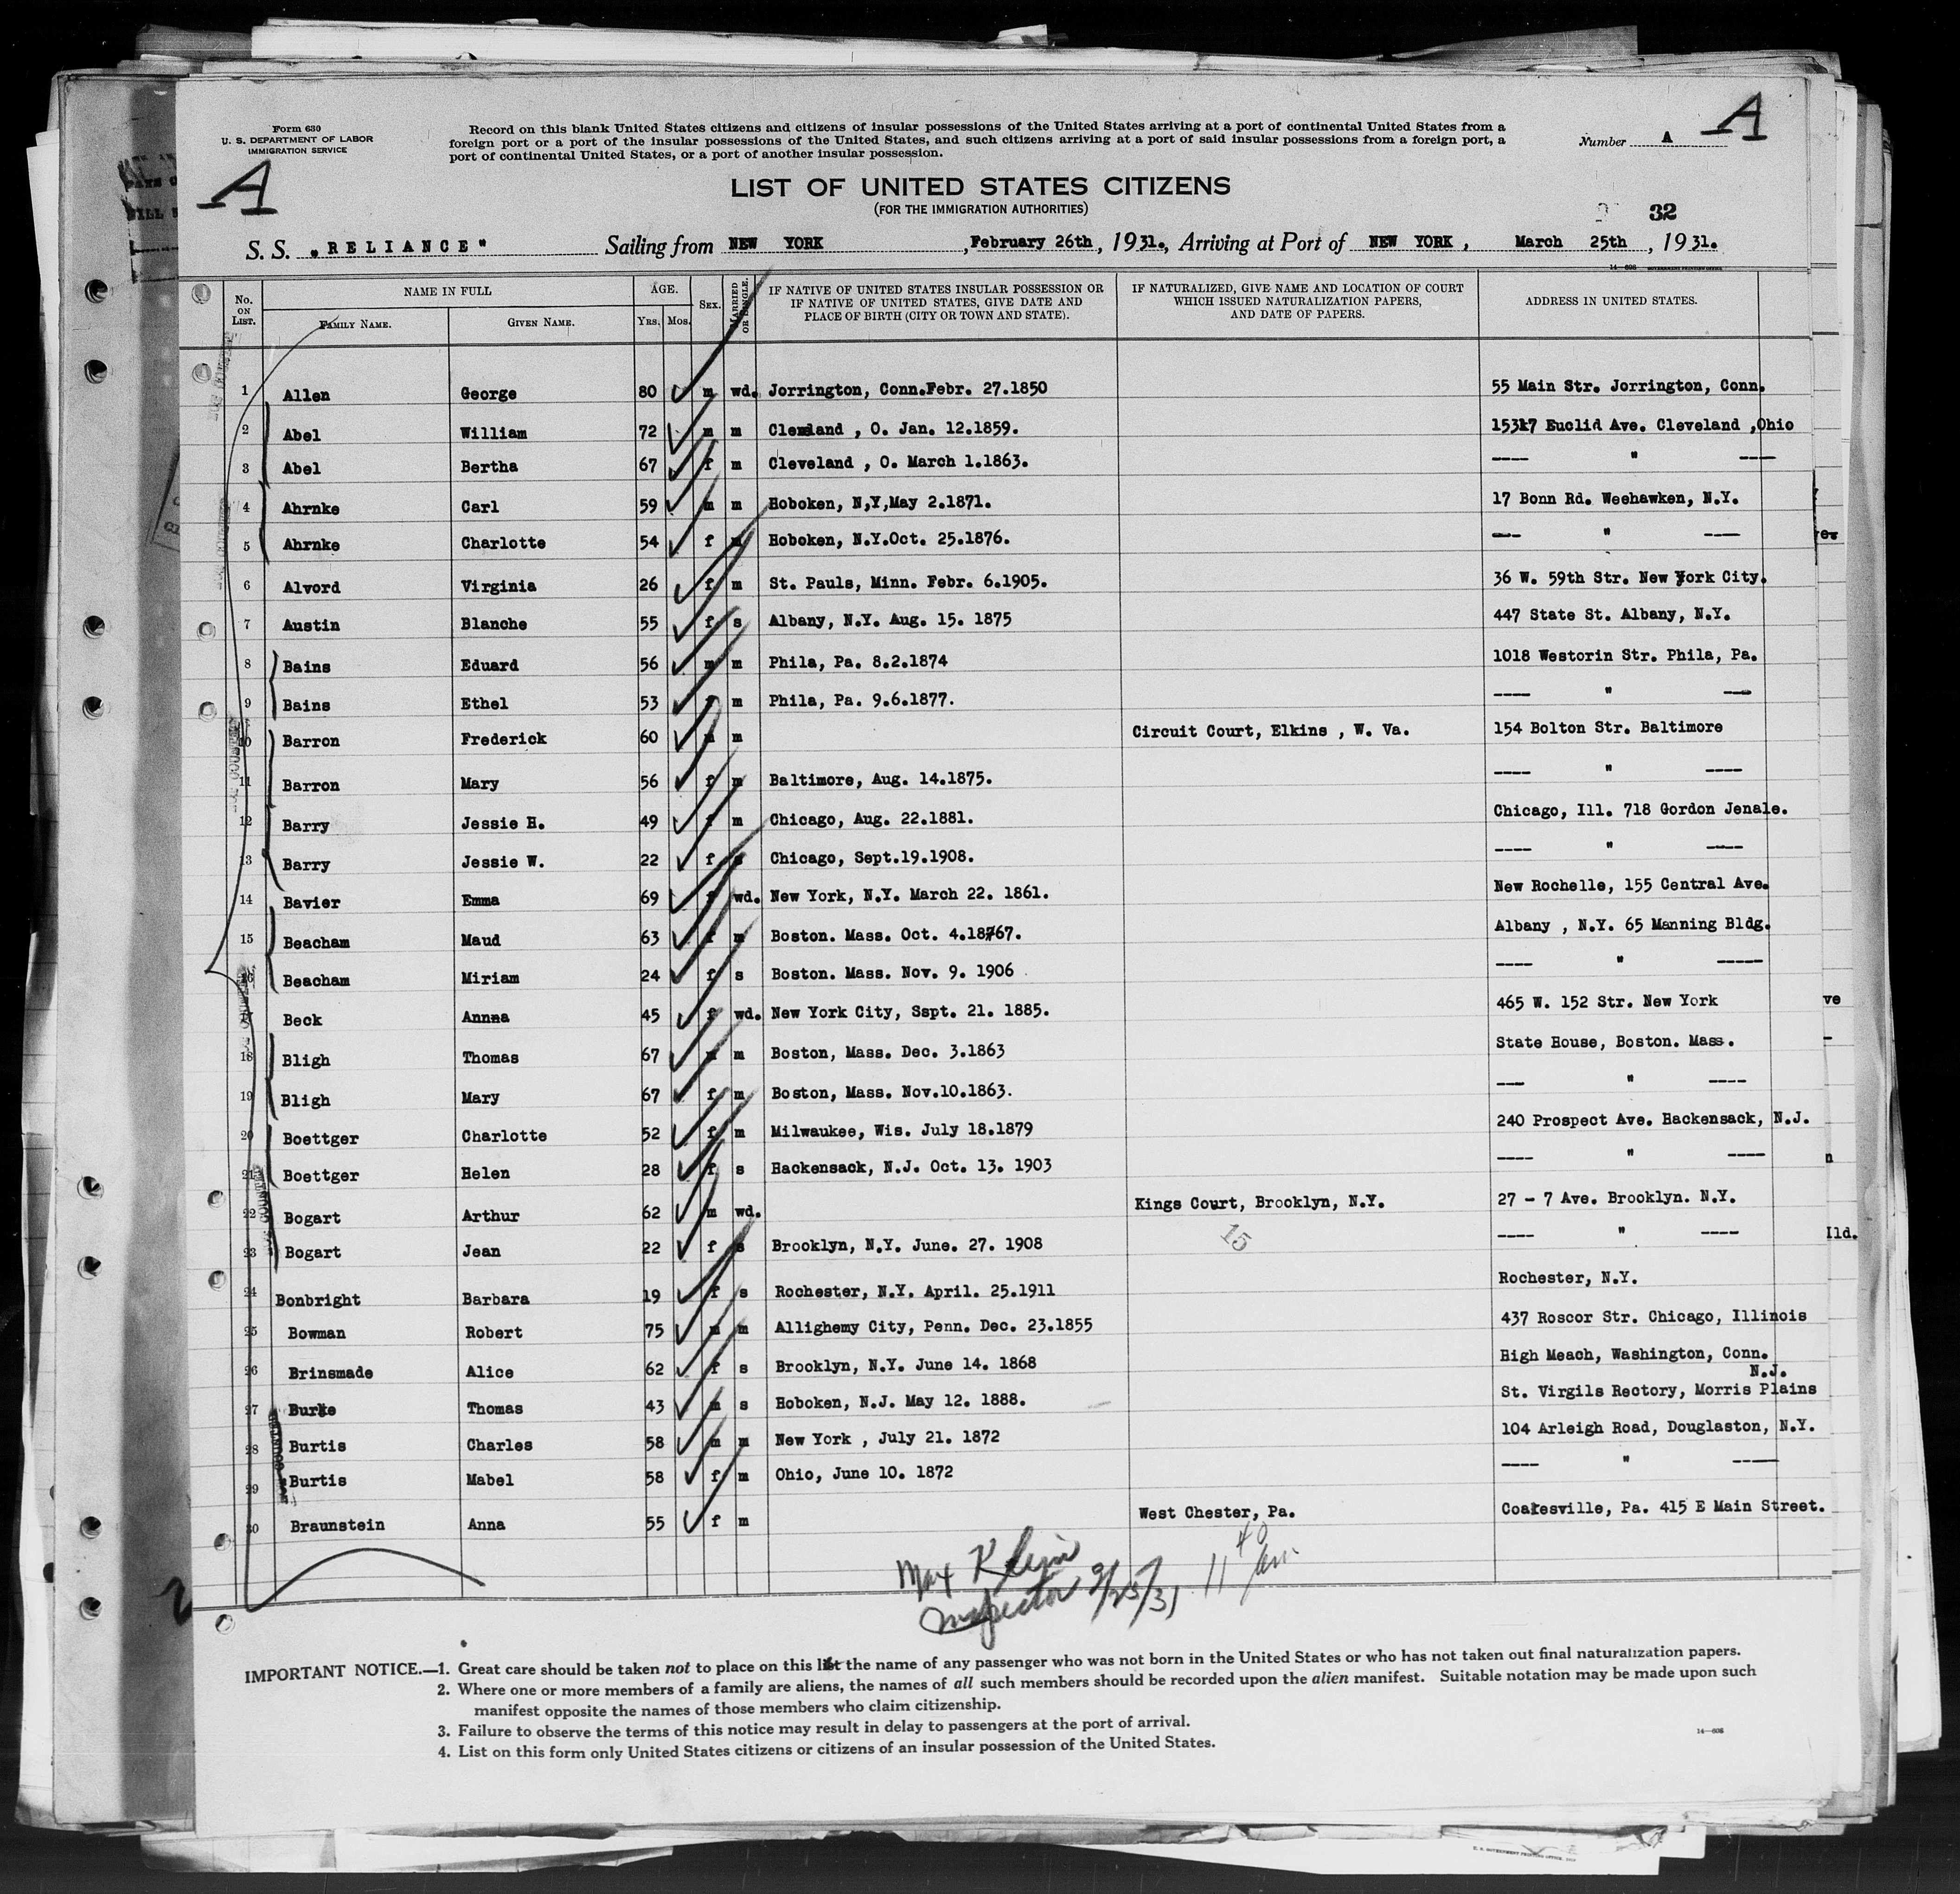 Form 630
U. S. DEPARTMENT OF LABOR
IMMIGRATION SERVICE
Record on this blank United States citizens and citizens of insular possessions of the United States arriving at a port of continental United States from a
foreign port or a port of the insular possessions of the United States, and such citizens arriving at a port of said insular possessions from a foreign port, a
port of continental United States, or a port of another insular possession.
Number A
A
A
LIST OF UNITED STATES CITIZENS
(FOR THE IMMIGRATION AUTHORITIES)
32
S. S. "RELIANCE" Sailing from NEW YORK, February 26th, 1931., Arriving at Port of NEW YORK, March 25th, 1931.
No. ON LIST. NAME IN FULL FAMILY NAME. GIVEN NAME. AGE. YRS. MOS. SEX. MARRIED OR SINGLE. IF NATIVE OF UNITED STATES INSULAR POSSESSION OR IF NATIVE OF UNITED STATES, GIVE DATE AND PLACE OF BIRTH (CITY OR TOWN AND STATE). IF NATURALIZED, GIVE NAME AND LOCATION OF COURT WHICH ISSUED NATURALIZATION PAPERS, AND DATE OF PAPERS. ADDRESS IN UNITED STATES.
1 Allen George 80 m wd. Jorrington, Conn.Febr. 27.1850 55 Main Str. Jorrington, Conn.
2 Abel William 72 m m Cleveland , O. Jan. 12.1859. 15317 Euclid Ave. Cleveland ,Ohio
3 Abel Bertha 67 f m Cleveland , O. March 1.1863. ---- " ----
4 Ahrnke Carl 59 m m Hoboken, N,Y,May 2.1871. 17 Bonn Rd. Weehawken, N.Y.
5 Ahrnke Charlotte 54 f m Hoboken, N.Y.Oct. 25.1876. --- " ----
6 Alvord Virginia 26 f m St. Pauls, Minn. Febr. 6.1905. 36 W. 59th Str. New York City.
7 Austin Blanche 55 f s Albany, N.Y. Aug. 15. 1875 447 State St. Albany, N.Y.
8 Bains Eduard 56 m m Phila, Pa. 8.2.1874 1018 Westorin Str. Phila, Pa.
9 Bains Ethel 53 f m Phila, Pa. 9.6.1877. ---- " ---
10 Barron Frederick 60 m m Circuit Court, Elkins , W. Va. 154 Bolton Str. Baltimore
11 Barron Mary 56 f m Baltimore, Aug. 14.1875. ---- " ----
12 Barry Jessie H. 49 f m Chicago, Aug. 22.1881. Chicago, Ill. 718 Gordon Jenale.
13 Barry Jessie W. 22 f s Chicago, Sept.19.1908. ---- " ----
14 Bavier Emma 69 f wd. New York, N.Y. March 22. 1861. New Rochelle, 155 Central Ave.
15 Beacham Maud 63 f m Boston. Mass. Oct. 4.1867. Albany , N.Y. 65 Manning Bldg.
16 Beacham Miriam 24 f s Boston. Mass. Nov. 9. 1906 ---- " -----
17 Beck Annna 45 f wd. New York City, Sspt. 21. 1885. 465 W. 152 Str. New York
18 Bligh Thomas 67 m m Boston, Mass. Dec. 3.1863 State House, Boston. Mass.
19 Bligh Mary 67 f m Boston, Mass. Nov.10.1863. --- " ----
20 Boettger Charlotte 52 f m Milwaukee, Wis. July 18.1879 240 Prospect Ave. Hackensack, N.J.
21 Boettger Helen 28 f s Hackensack, N.J. Oct. 13. 1903 ---- " ----
22 Bogart Arthur 62 m wd. Kings Court, Brooklyn, N.Y. 27 - 7 Ave. Brooklyn. N.Y.
15
23 Bogart Jean 22 f s Brooklyn, N.Y. June. 27. 1908 ---- " ----
24 Bonbright Barbara 19 f s Rochester, N.Y. April. 25.1911 Rochester, N.Y.
25 Bowman Robert 75 m m Allighemy City, Penn. Dec. 23.1855 437 Roscor Str. Chicago, Illinois
26 Brinsmade Alice 62 f s Brooklyn, N.Y. June 14. 1868 High Meach, Washington, Conn.
27 Burke Thomas 43 m s Hoboken, N.J. May 12. 1888. St. Virgils Rectory, Morris Plains N.J.
28 Burtis Charles 58 m m New York , July 21. 1872 104 Arleigh Road, Douglaston, N.Y.
29 Burtis Mabel 58 f m Ohio, June 10. 1872 ---- " -----
30 Braunstein Anna 55 f m West Chester, Pa. Coatesville, Pa. 415 E Main Street.
Max Klein
Inspector 3/25/31 11 40 am
IMPORTANT NOTICE.—1. Great care should be taken not to place on this list the name of any passenger who was not born in the United States or who has not taken out final naturalization papers.
2. Where one or more members of a family are aliens, the names of all such members should be recorded upon the alien manifest. Suitable notation may be made upon such
manifest opposite the names of those members who claim citizenship.
3. Failure to observe the terms of this notice may result in delay to passengers at the port of arrival.
4. List on this form only United States citizens or citizens of an insular possession of the United States.